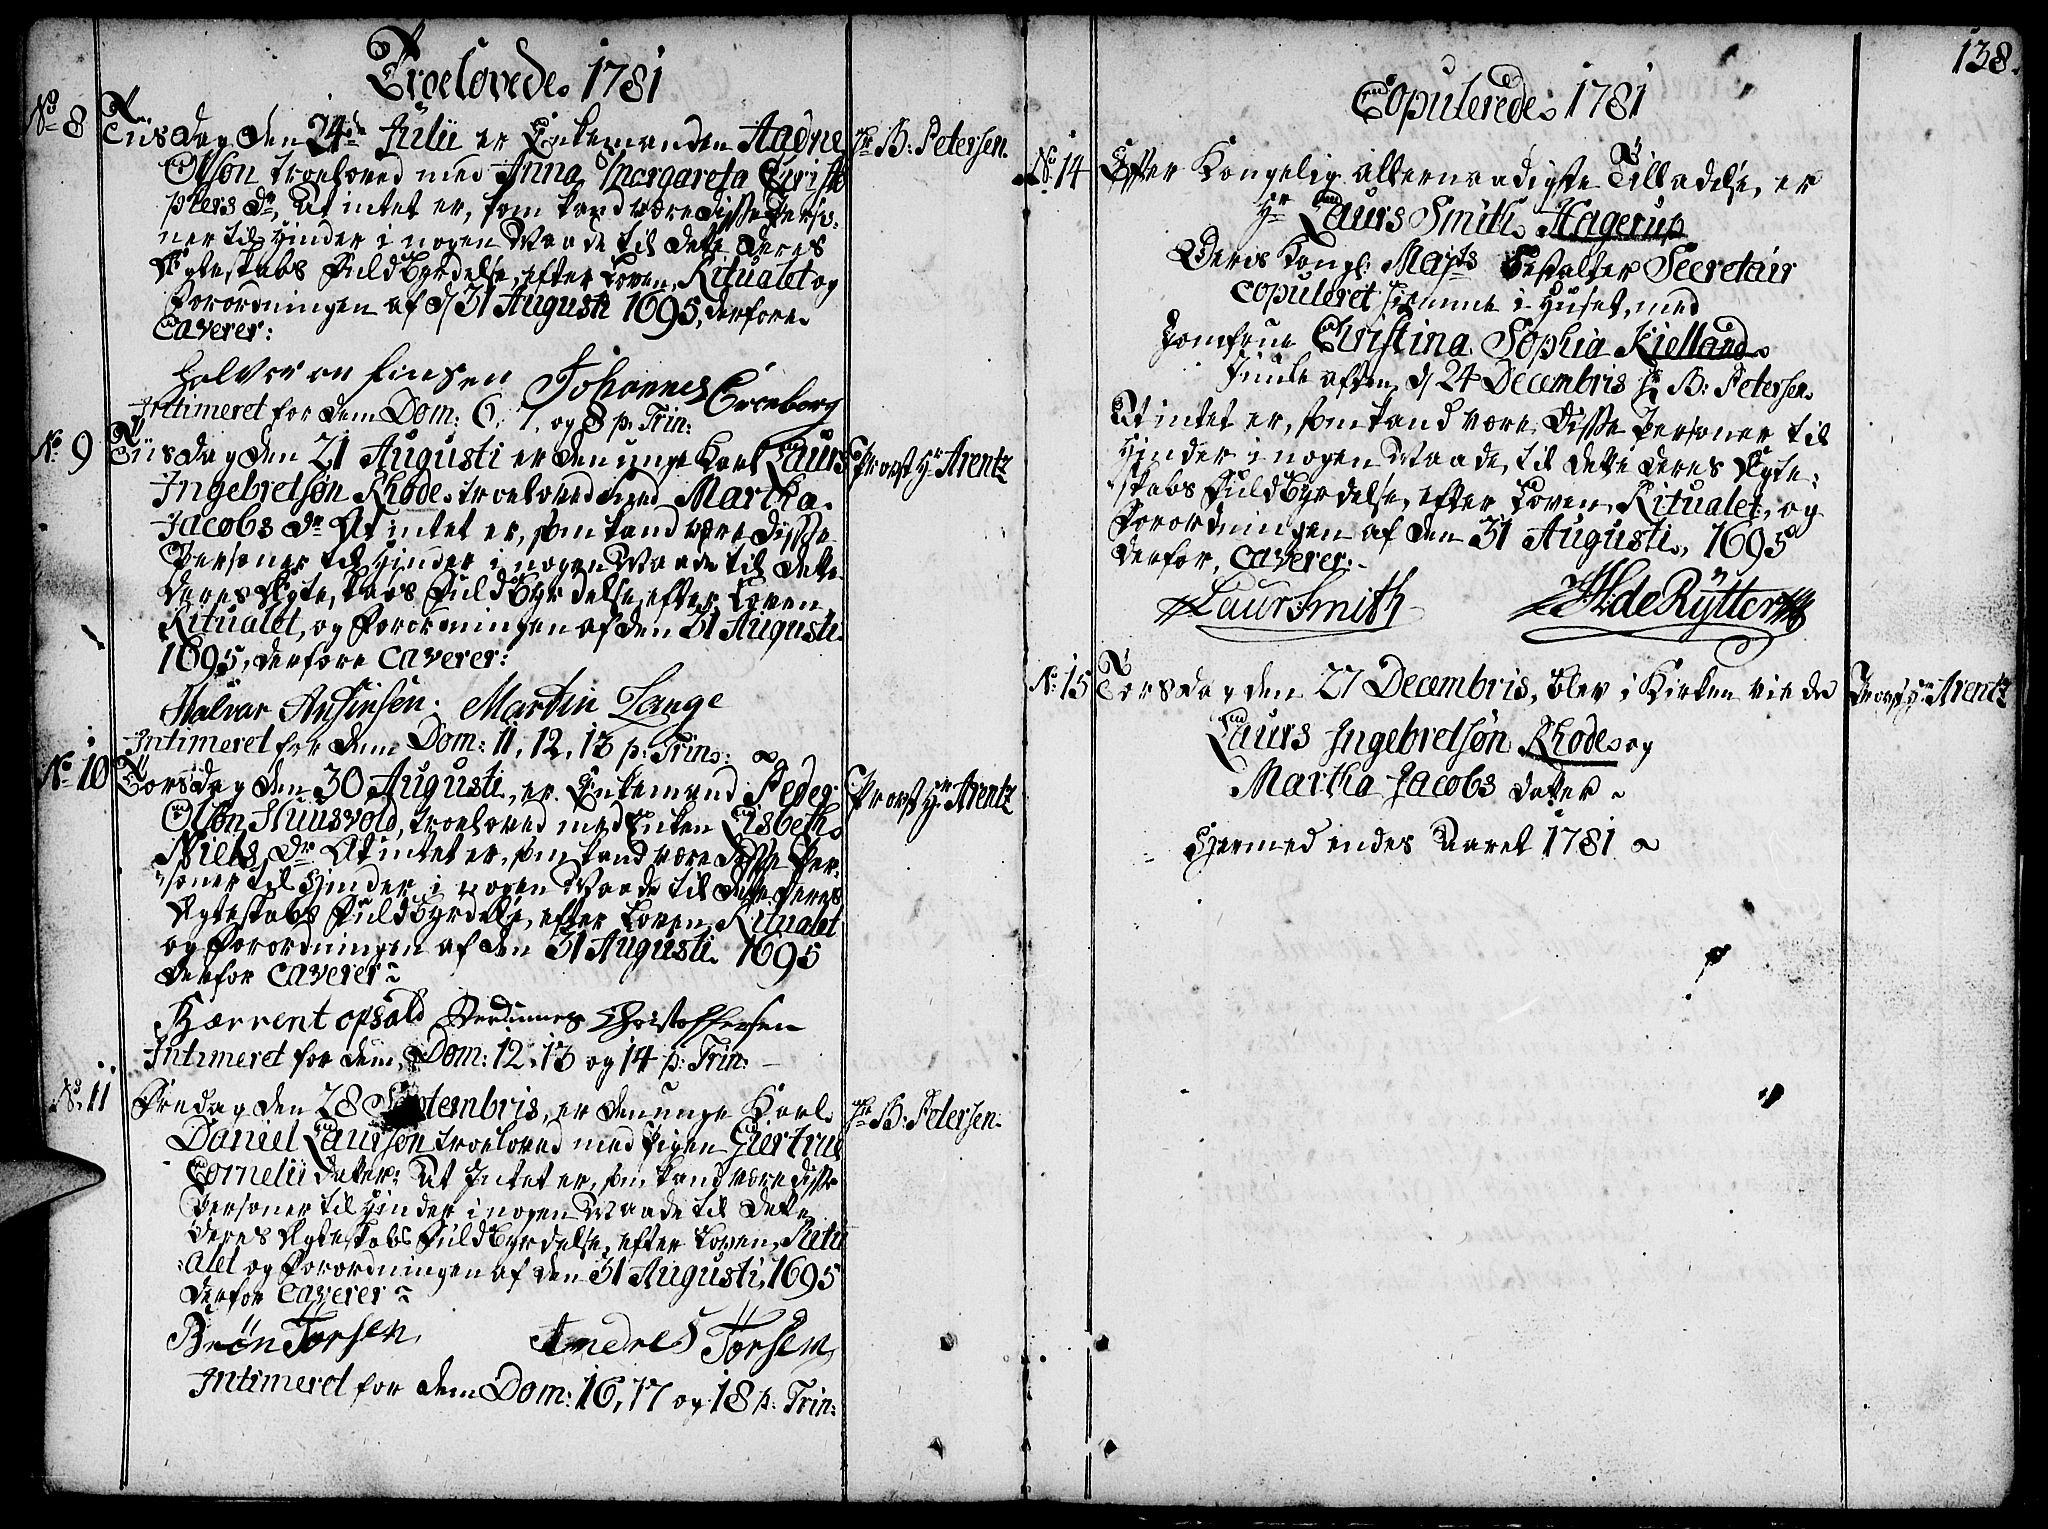 Troelovede 1781
No 8
Tiisdag den 24de Julii er Enkemanden Aadne
Olsøn troeloved med Anna Margareta Christo
phers Dr, At intet er, som kand være disse Perso-
ner til Hinder i nogen Maade til dette deres
Ægteskabs Fuldbyrdelse, efter Loven, Ritualet og
Forordningen af d 31 Augusti 1695, derfore
Caverer:
Johannes
Intimeret for dem Dom: 6, 7, og 8 p. Trin:
Hr B: Petersen.
No 9
Tiisdag den 21 Augusti er den unge Karl Laurs
Ingebretsøn Rhode troeloved med Martha
Jacobs Dr At intet er, som kand være disse
Personer til Hinder i nogen Maade til dette
deres Ægteskabs Fuldbyrdelse, efter Loven,
Ritualet, og Forordningen af den 31 Augusti
1695, derfore Caverer:
Martin Lange
Intimeret for dem Dom: 11, 12, 13 p: Trin:
Provst Hr Arentz
No 10
Torsdag den 30 Augusti, er Enkemand Peder
Olsøn Huusvold, troeloved med Enken Lisbeth
Niels Dr At intet er, som kand være disse Per-
soner til Hinder i nogen Maade til dette deres
Ægteskabs Fuldbyrdelse, efter Loven, Ritualet
og Forordningen af den 31 Augusti 1695
derfor Caverer
opsald Christophersen
Intimeret for dem Dom: 12, 13 og 14 p: Trin:
Provst Hr Arentz
No 11
Fredag den 28 Septembris, er den unge Karl
Daniel Laursøn troeloved med Pigen Giertrud
Cornelii dater: At Intet er, som kand være disse
Personer til Hinder i nogen Maade til dette
deres Ægteskabs Fuldbyrdelse, efter Loven, Ritu
alet og Forordningen af den 31 Augusti, 1695
derfor Caverer
Torsen Andres Torsen
Intimeret for dem Dom: 16, 17 og 18 p: Trin:
Hr B: Petersen.
138.
Copulerede 1781
No 14
Efter Kongelig allernaadigste Tilladelse, er
Hr Laurs Smith Hagerup
Deris Kongl: Majts Bestalter Secretair
copuleret hiemme i Huset, med
Jomfrue Christina Sophia Kielland
Juule aften, d 24 Decembris Hr B: Petersen.
At intet er, som kand være disse Personer til
Hinder i nogen Maade, til dette deres Ægte-
skabs Fuldbyrdelse, efter Loven, Ritualet, og
Forordningen af den 31 Augusti, 1695
derfor, Caverer:
Laur Smith de Rÿtter
No 15
Torsdag den 27 Decembris, blev i Kirken viede
Laurs Ingebretsøn Rhode og
Martha Jacobs dater
Provst Hr Arentz
Hermed endes Aaret 1781